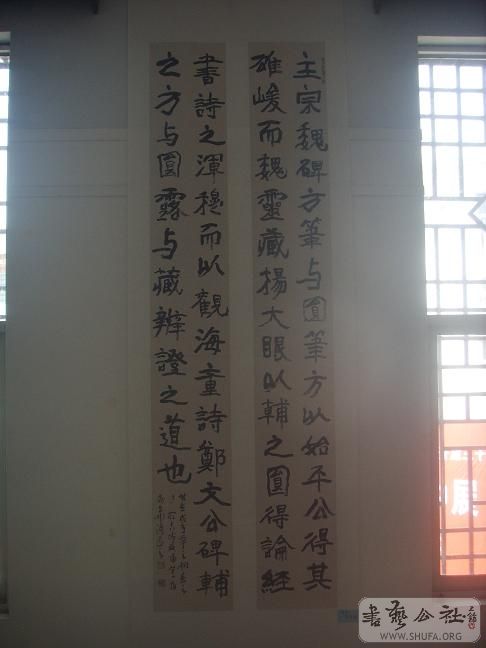 主宗魏碑方筆与圓筆方以始平公得其
雄峻而魏靈藏楊大眼以輔之圓得論經
書詩之渾穆而以觀海童詩鄭文公碑輔
之方与圓露与藏辨證之道也
書藝公社
WWW.SHUFA.ORG